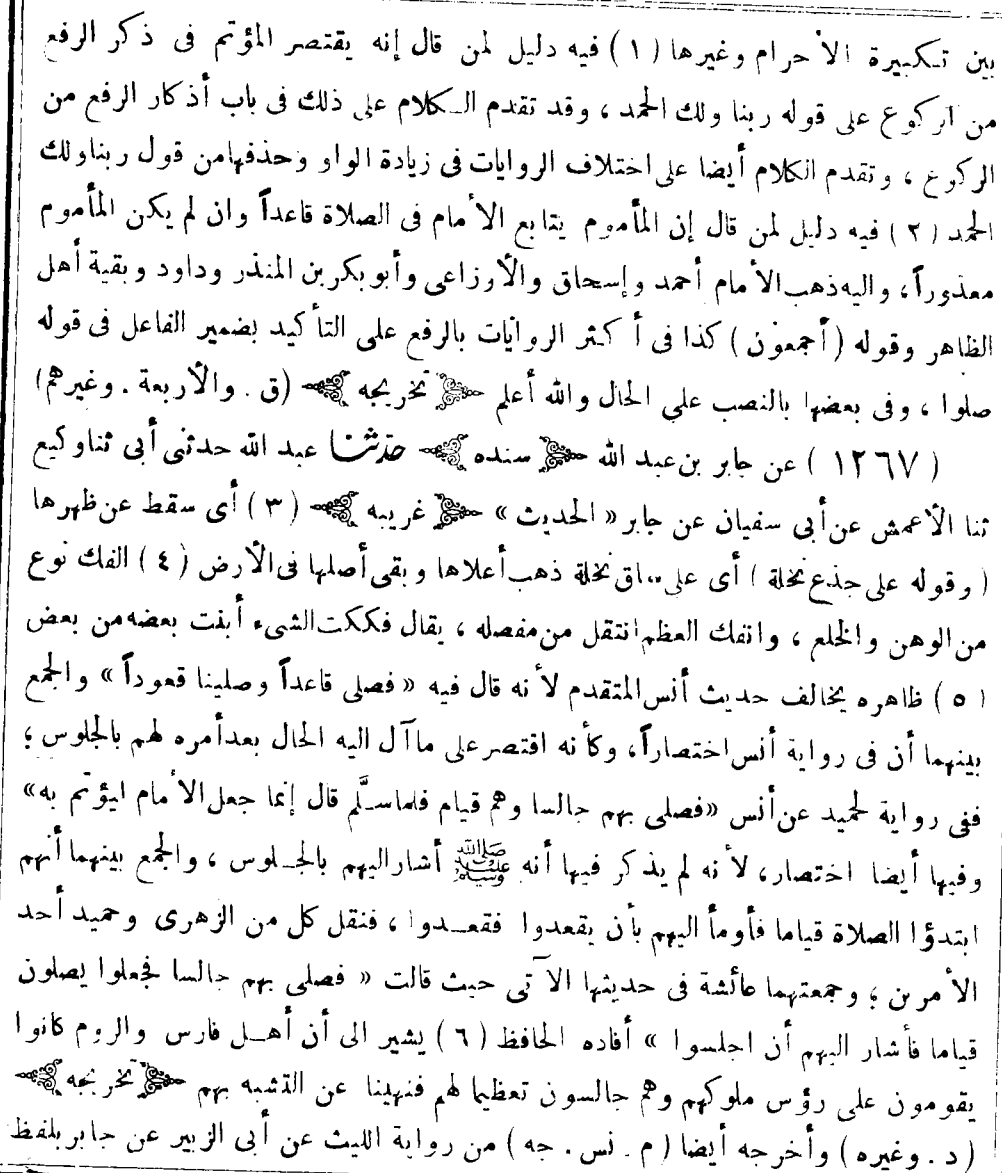 بين تكبيرة الأحرام وغيرها (١) فيه دليل لمن قال إنه يقتصر المؤتم فى ذكر الرفع
من الركوع على قوله ربنا ولك الحمد ، وقد تقدم الكلام على ذلك فى باب أذكار الرفع من
الركوع ، وتقدم الكلام أيضا على اختلاف الروايات فى زيادة الواو وحذفها من قول ربنا ولك
الحمد (٢) فيه دليل لمن قال إن المأموم يتابع الأمام فى الصلاة قاعداً وان لم يكن المأموم
معذوراً ، واليه ذهب الأمام أحمد وإسحاق والأوزاعى وأبو بكر بن المنذر وداود وبقية أهل
الظاهر وقوله (أجمعون) كذا فى أكثر الروايات بالرفع على التأكيد بضمير الفاعل فى قوله
صلوا ، وفى بعضها بالنصب على الحال والله أعلم ﴿ تخريجه ﴾ (ق . والأربعة . وغيرهم)
(١٢٦٧) عن جابر بن عبد الله ﴿ سنده ﴾ حدثنا عبد الله حدثنى أبى ثنا وكيع
ثنا الأعمش عن أبى سفيان عن جابر « الحديث » ﴿ غريبه ﴾ (٣) أى سقط عن ظهرها
(وقوله على جذع نخلة) أى على ساق نخلة ذهب أعلاها وبقى أصلها فى الأرض (٤) الفك نوع
من الوهن والخلع ، وانفك العظم انتقل من مفصله ، يقال فككت الشىء أبنت بعضه من بعض
(٥) ظاهره يخالف حديث أنس المتقدم لأنه قال فيه « فصلى قاعداً وصلينا قعوداً » والجمع
بينهما أن فى رواية أنس اختصاراً ، وكأنه اقتصر على ما آل اليه الحال بعد أمره لهم بالجلوس ؛
ففى رواية لحميد عن أنس «فصلى بهم جالسا وهم قيام فلما سلَّم قال إنما جعل الأمام ليؤتم به»
وفيها أيضا اختصار ، لأنه لم يذكر فيها أنه ﷺ أشار اليهم بالجلوس ، والجمع بينهما أنهم
ابتدؤا الصلاة قياما فأومأ اليهم بأن يقعدوا فقعدوا ، فنقل كل من الزهرى وحميد أحد
الأمرين ؛ وجمعتهما عائشة فى حديثها الآتى حيث قالت « فصلى بهم جالسا فجعلوا يصلون
قياما فأشار اليهم أن اجلسوا » أفاده الحافظ (٦) يشير الى أن أهل فارس والروم كانوا
يقومون على رؤس ملوكهم وهم جالسون تعظيما لهم فنهينا عن التشبه بهم ﴿ تخريجه ﴾
(د . وغيره) وأخرجه أيضا (م . نس . جه) من رواية الليث عن أبى الزبير عن جابر بلفظ